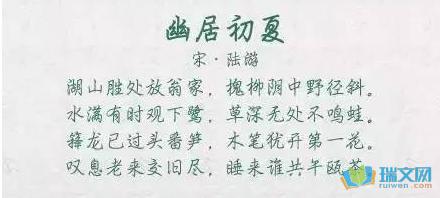 幽居初夏
宋·陆游
湖山胜处放翁家，槐柳阴中野径斜。
水满有时观下鹭，草深无处不鸣蛙。
箨龙已过头番笋，木笔犹开第一花。
叹息老来交旧尽，睡来谁共午瓯茶。
瑞文网